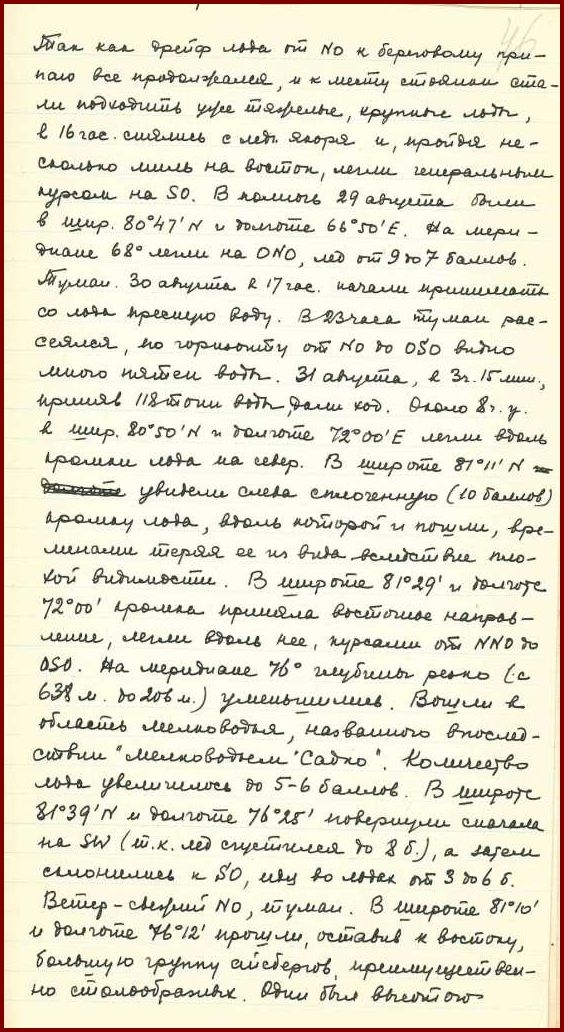 46
Так как дрейф льда от NO к береговому при-
паю все продолжался, и к месту стоянки ста-
ли подходить уже тяжелые, крупные льды,
в 16 час. снялись с ледян. якоря и, пройдя не-
сколько миль на восток, легли генеральным
курсом на SO. В полночь 29 августа были
в шир. 80°47' N и долготе 66°50' E. На мери-
диане 68° легли на ONO, лед от 9 до 7 баллов.
Туман. 30 августа в 17 час. начали принимать
со льда пресную воду. В 23 часа туман рас-
сеялся, по горизонту от NO до OSO видно
много пятен воды. 31 августа, в 3ч. 15 мин.,
приняв 118 тонн воды, дали ход. Около 8 ч. у.
в шир. 80°50' N и долготе 72°00' E легли вдоль
кромки льда на север. В широте 81°11' N и
долготе увидели слева сплоченную (10 баллов)
кромку льда, вдоль которой и пошли, вре-
менами теряя ее из вида вследствие пло-
хой видимости. В широте 81°29' и долготе
72°00' кромка приняла восточное направ-
ление, легли вдоль нее, курсами от NNO до
OSO. На меридиане 76° глубины резко (с
638 м. до 206 м.) уменьшились. Вошли в
область мелководья, названного впослед-
ствии "Мелководьем "Садко". Количество
льда увеличилось до 5-6 баллов. В широте
81°39' N и долготе 76°25' повернули сначала
на SW (т.к. лед сгустился до 8 б.), а затем
склонились к SO, идя во льдах от 3 до 6 б.
Ветер - свежий NO, туман. В широте 81°10'
и долготе 76°12' прошли, оставив к востоку,
большую группу айсбергов, преимуществен-
но столообразных. Один был высотою